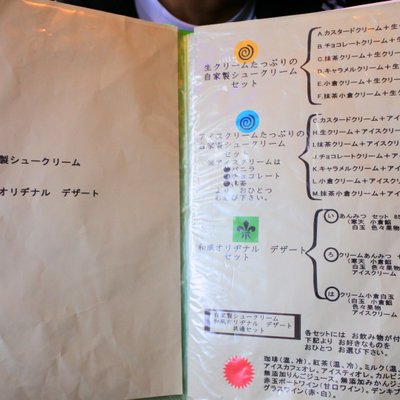 製シュークリーム
オリヂナル デザート
生クリームたっぷりの
自家製シュークリーム
セット
A.カスタードクリーム+生ク
B.チョコレートクリーム+生
C.抹茶クリーム+生クリー
D.キャラメルクリーム+生ク
E.小倉クリーム+生クリー
F.抹茶小倉クリーム+生ク
アイスクリームたっぷりの
自家製シュークリーム
セット
※アイスクリームは
バニラ
チョコレート
抹茶
より おひとつ
お選び下さい。
G.カスタードクリーム+アイ
H.生クリーム+アイスクリ
I.抹茶クリーム+アイスク
J.チョコレートクリーム+ア
K.キャラメルクリーム+アイ
L.小倉クリーム+アイスク
M.抹茶小倉クリーム+アイ
和風オリヂナル デザート
セット
い あんみつ セット 85
(寒天 小倉餡
白玉 色々果物
ろ クリームあんみつ セ
(寒天 小倉餡
白玉 色々果
アイスクリーム
は クリーム小倉白玉
(白玉 小倉餡
色々果物
アイスクリーム
自家製シュークリーム
和風オリヂナル デザート
共通セット
各セットには お飲み物が付
下記より お好きなものを
おひとつ お選び下さい。
珈琲(温、冷)、紅茶(温、冷)、ミルク(温、
アイスカフェオレ、アイスティオレ、カルピス
無添加りんごジュース、無添加みかんジュ
赤玉ポートワイン(甘口ワイン)、デンキブ
グラスワイン(赤・白)、